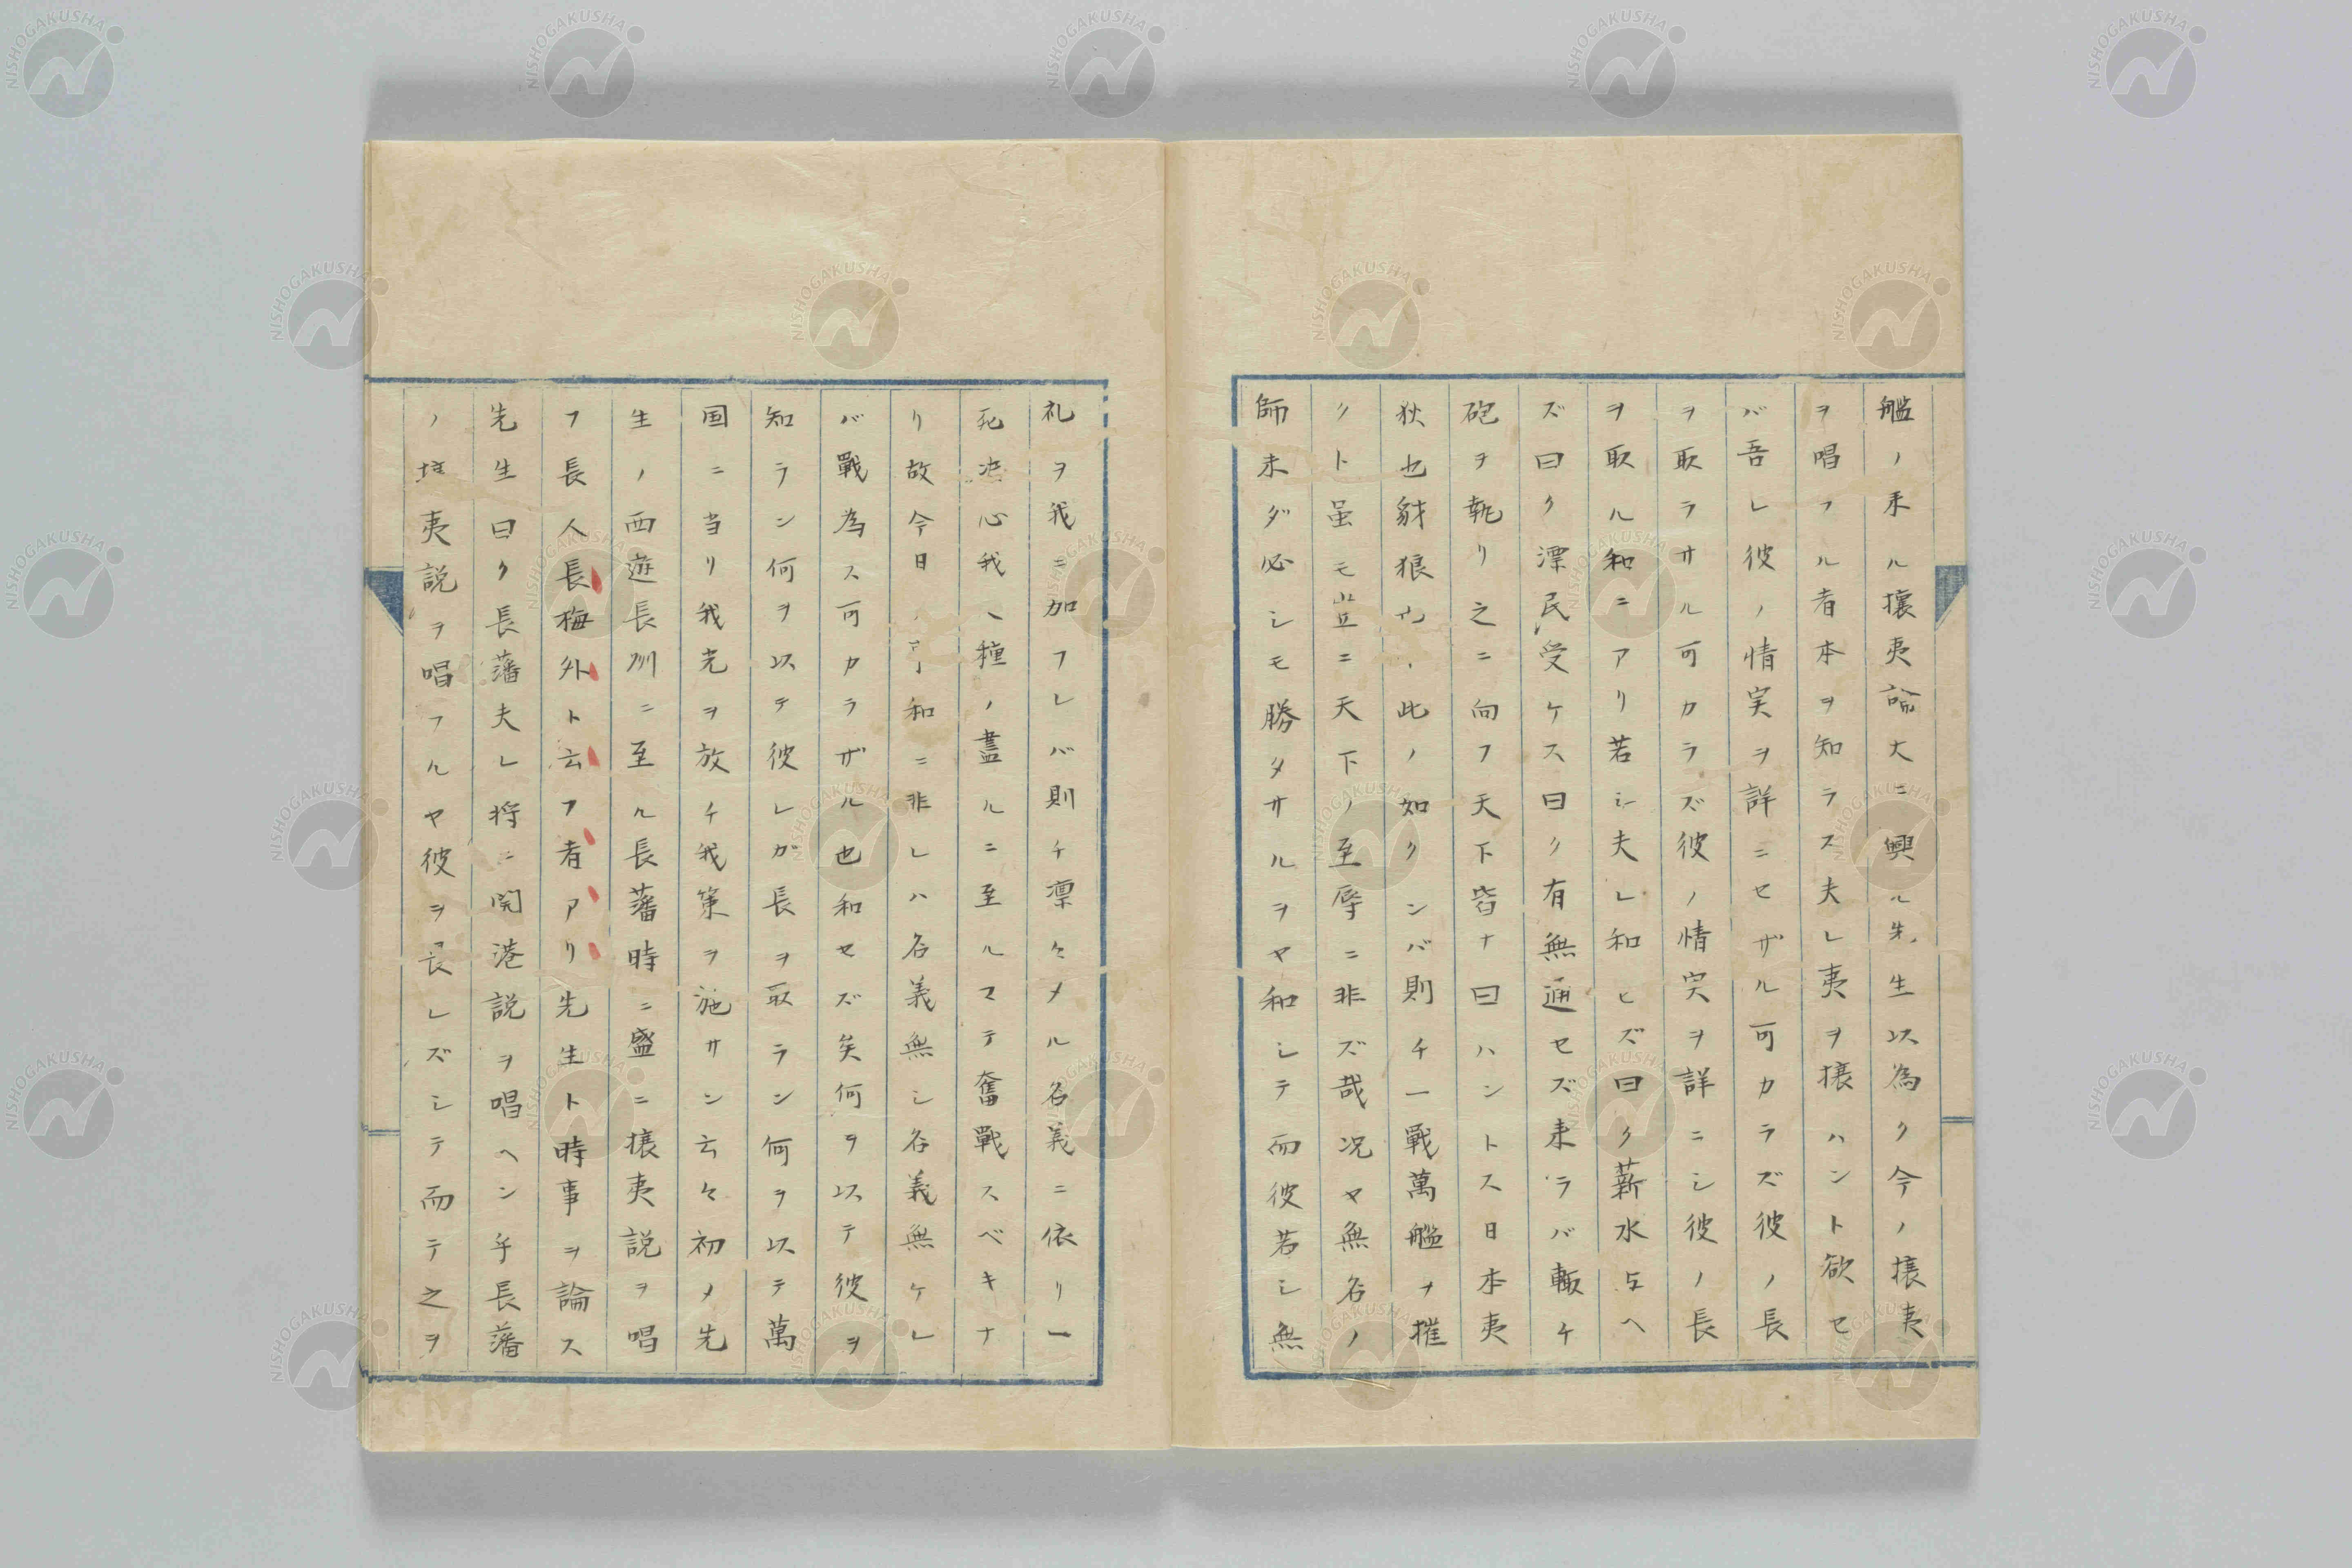 艦ノ来ル攘夷論大ニ興ル先生以為ク今ノ攘夷
ヲ唱フル者本ヲ知ラス夫レ夷ヲ攘ハント欲セ
バ吾レ彼ノ情実ヲ詳ニセザル可カラズ彼ノ長
ヲ取ラサル可カラズ彼ノ情実ヲ詳ニシ彼ノ長
ヲ取ル和ニアリ若シ夫レ和セズ曰ク薪水与ヘ
ズ曰ク漂民受ケス曰ク有無通セズ来ラバ輙チ
砲ヲ執リ之ニ向フ天下皆ナ曰ハントス日本夷
狄也豺狼也此ノ如クンバ則チ一戦萬艦ヲ摧
クト虽モ豈ニ天下ノ至辱ニ非ズ哉况ヤ無名ノ
師未ダ必シモ勝タサルヲヤ和シテ而彼若シ無
礼ヲ我ニ加フレバ則チ凛々メル名義ニ依リ一
死决心我ノ種ノ盡ルニ至ルマテ奮戰スベキナ
リ故今日ノ和ニ非レハ名義無シ名義無ケレ
バ戰為ス可カラザル也和セズ矣何ヲ以テ彼ヲ
知ラン何ヲ以テ彼レガ長ヲ取ラン何ヲ以テ萬
国ニ当リ我光ヲ放チ我策ヲ施サン云々初メ先
生ノ西遊長州ニ至ル長藩時ニ盛ニ攘夷説ヲ唱
フ長人長梅外ト云フ者アリ先生ト時事ヲ論ス
先生曰ク長藩夫レ将ニ開港説ヲ唱ヘン乎長藩
ノ攘夷説ヲ唱フルヤ彼ヲ長レズシテ而テ之ヲ
NISHOGAKUSHA